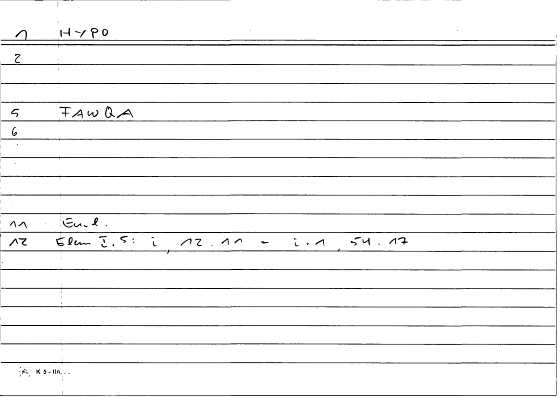 1 HYPO
2
5 FAWQA
6
11 Eucl.
12 Elem I.5: i, 12.11 - i.1, 54.17
K 5